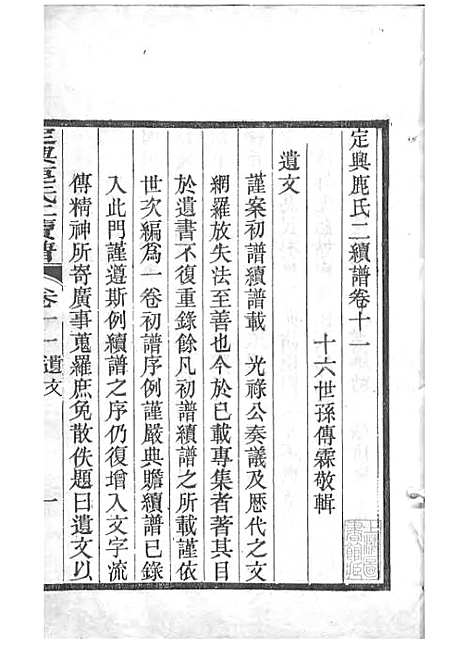 定興鹿氏二續譜卷十一
十六世孫傳霖敬輯
遺文
謹案初譜續譜載　光祿公奏議及歷代之文
網羅放失法至善也今於已載專集者著其目
於遺書不復重錄餘凡初譜續譜之所載謹依
世次編為一卷初譜序例謹嚴典贍續譜已錄
入此門謹遵斯例續譜之序仍復增入文字流
傳精神所寄廣事蒐羅庶免散佚題曰遺文以
定興鹿氏二續譜
卷十一遺文
一